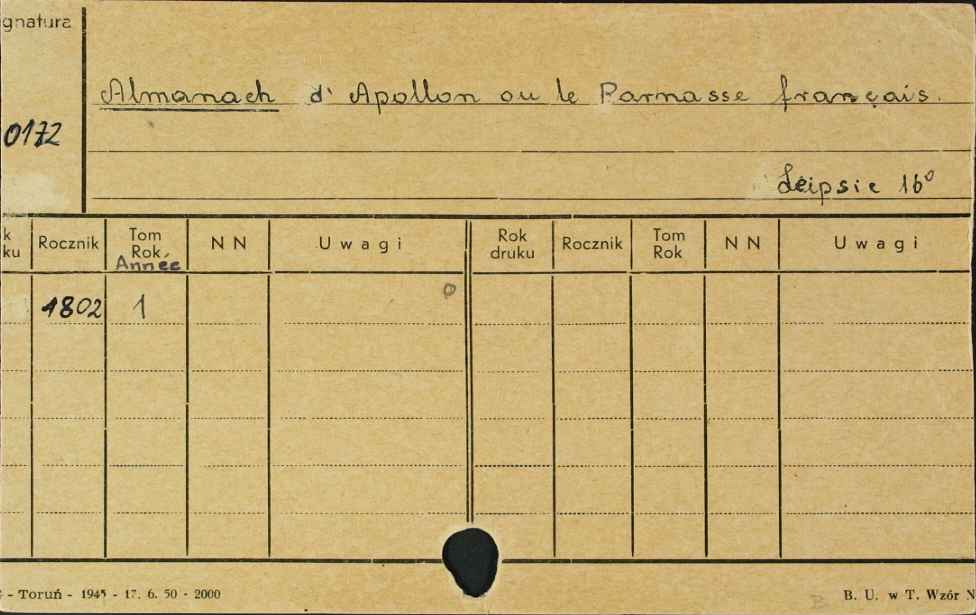 gnatura
Almanach d'Apollon ou le Parnasse français.
0172
Leipsic 16°
k
ku
Rocznik
Tom
Rok
Année
N N
Uwagi
Rok
druku
Rocznik
Tom
Rok
N N
Uwagi
1802 1 o
- Toruń - 1945 - 17. 6. 50 - 2000
B. U. w T. Wzór N